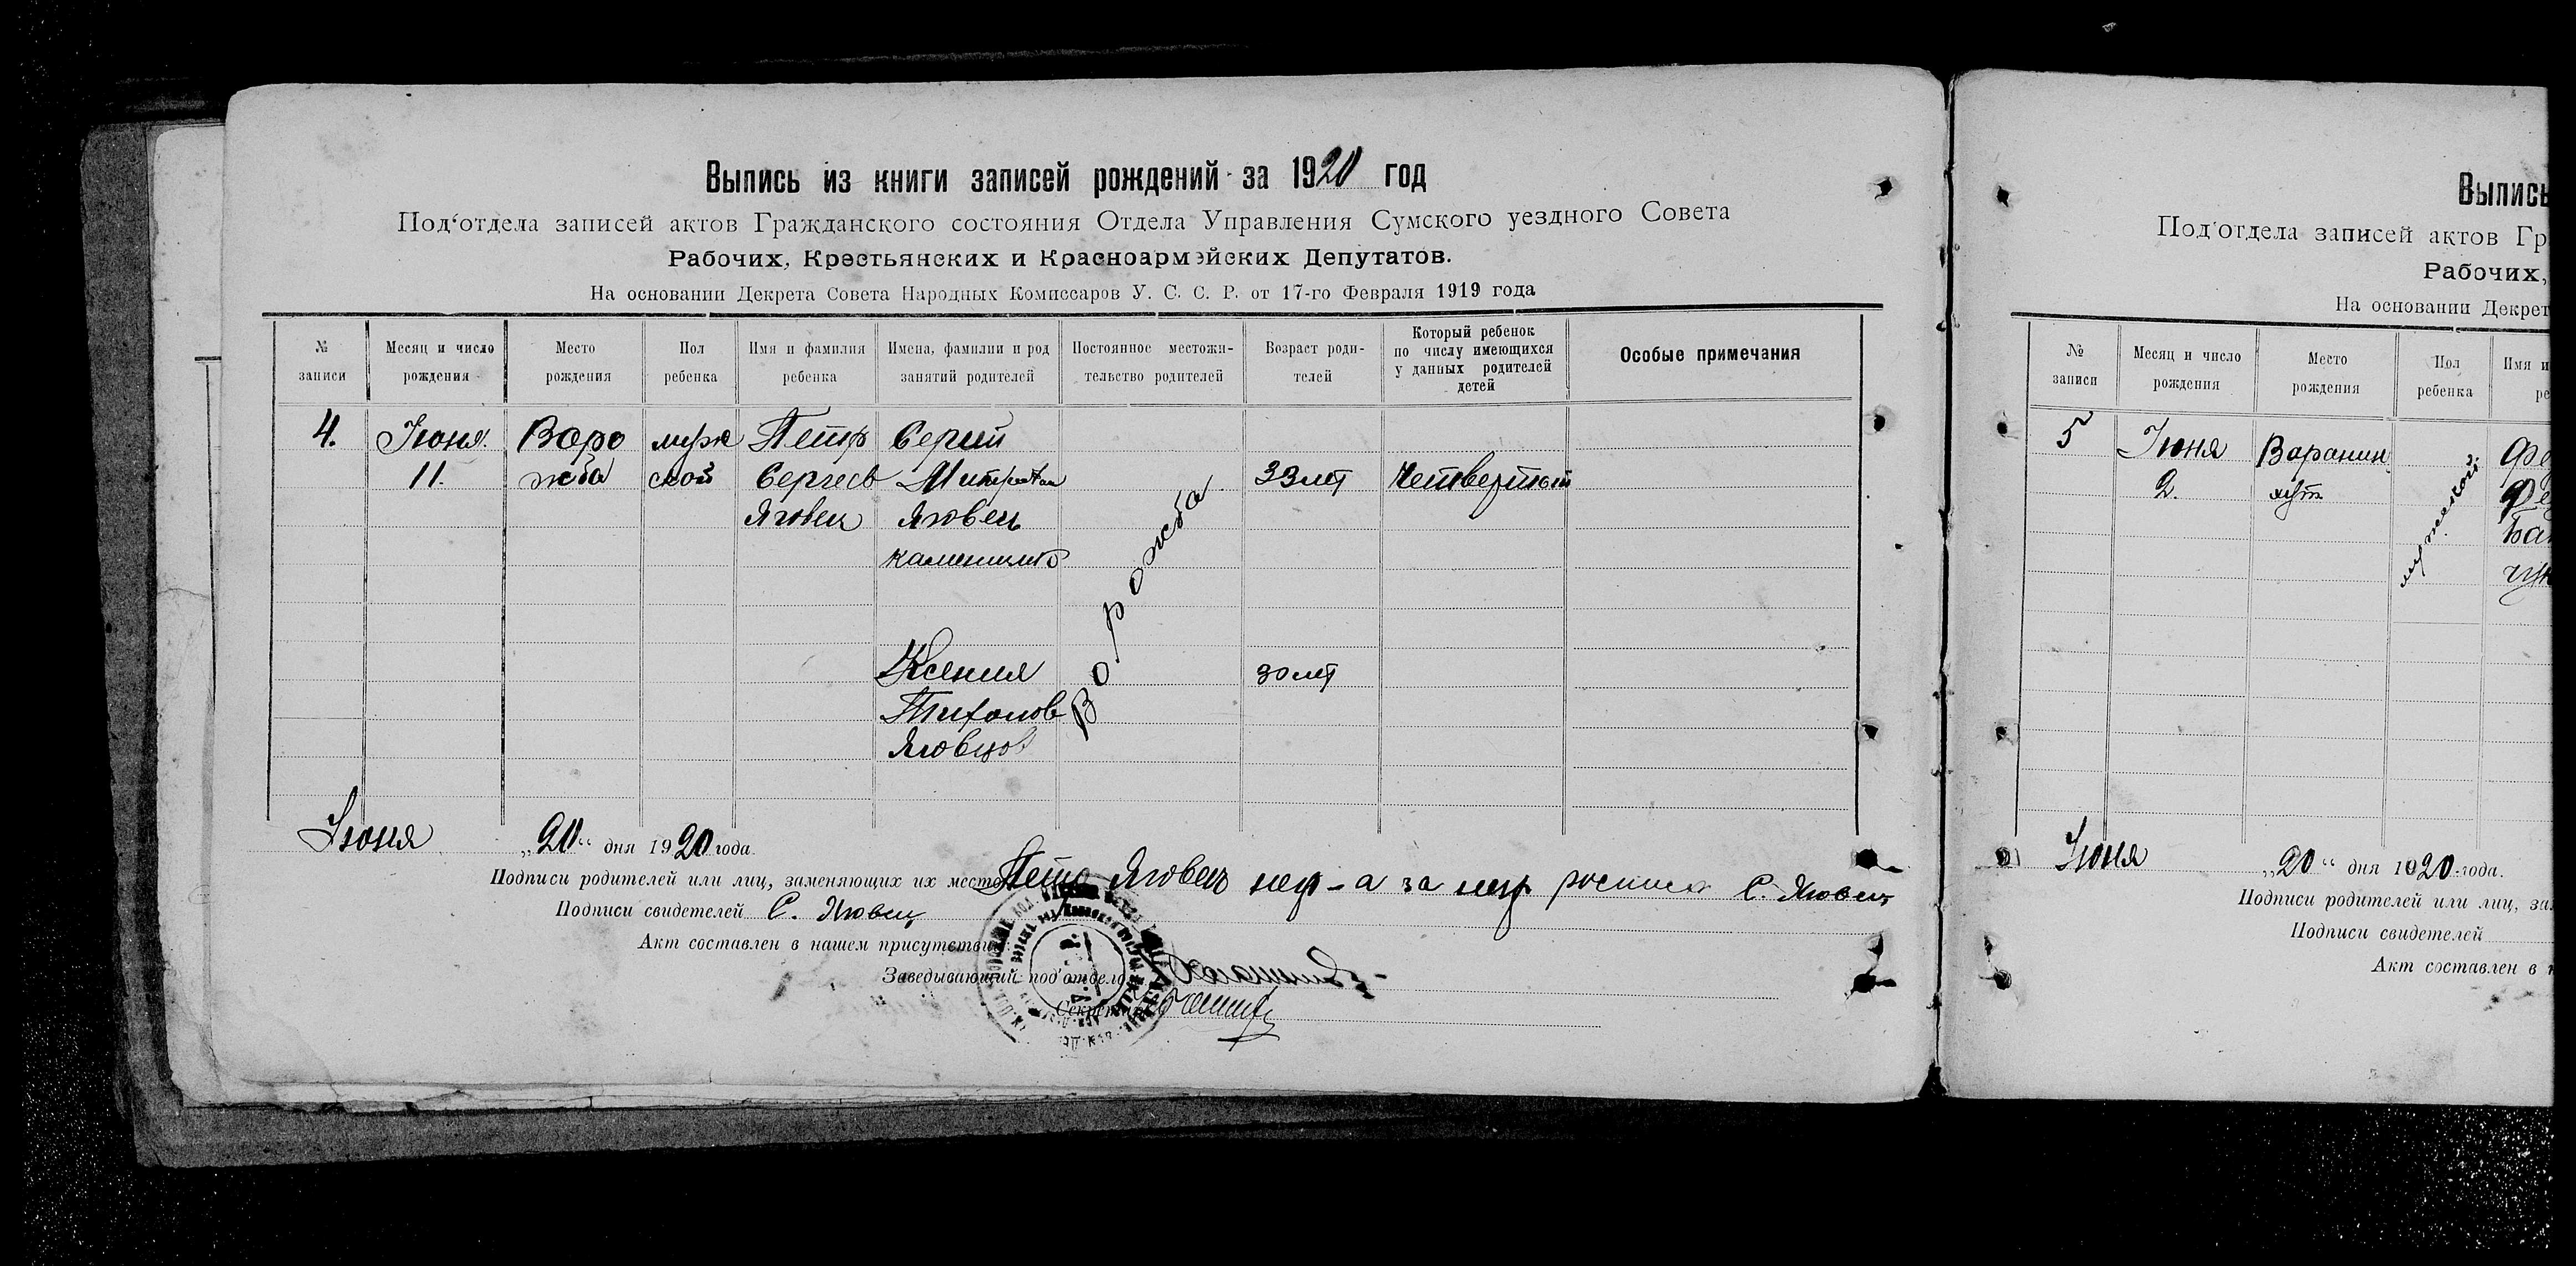 Выпись из книги записей рождений за 1920 год
Под‘отдела записей актов Гражданского состояния Отдела Управления Сумского уездного Совета
Рабочих, Крестьянских и Красноармэйских Депутатов.
На основании Декрета Совета Народных Комиссаров У. С. С. Р. от 17-го Февраля 1919 года
№ записи
Месяц и число рождения
Место рождения
Пол ребенка
Имя и фамилия ребенка
Имена, фамилии и род занятий родителей
Постоянное местожи-
тельство родителей
Возраст роди-
телей
Который ребенок
по числу имеющихся
у данных родителей
детей
Особые примечания
4.
Июня.
11.
Воро
жба
муж
ской
Петр
Сергеев
Яговец
Сергий
Митрофан
Яговец
каменщик
Ксения
Тихонов
Яговцов
Ворожба
33 лет
30 лет
Четвертый
Июня „20“ дня 1920 года.
Подписи родителей или лиц, заменяющих их место Яговец за С. Яговец
Подписи свидетелей С. Яговец
Акт составлен в нашем присутствии
Заведывающий под‘отдело
Секретарь
Выпись
Под‘отдела записей актов Гр
Рабочих,
На основании Декрет
№ записи
Месяц и число рождения
Место рождения
Пол ребенка
Имя и
ре
5
Июня
2.
мужской
Июня „20“ дня 1920 года.
Подписи родителей или лиц, за
Подписи свидетелей
Акт составлен в н